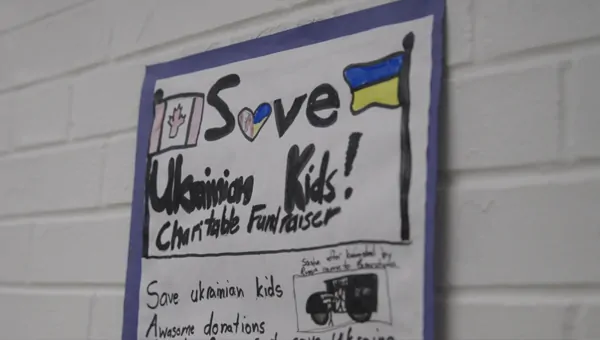 Save
Ukrainian Kids!
Charitable Fundraiser
Save ukrainian kids
Awasome donations
save Ukraine